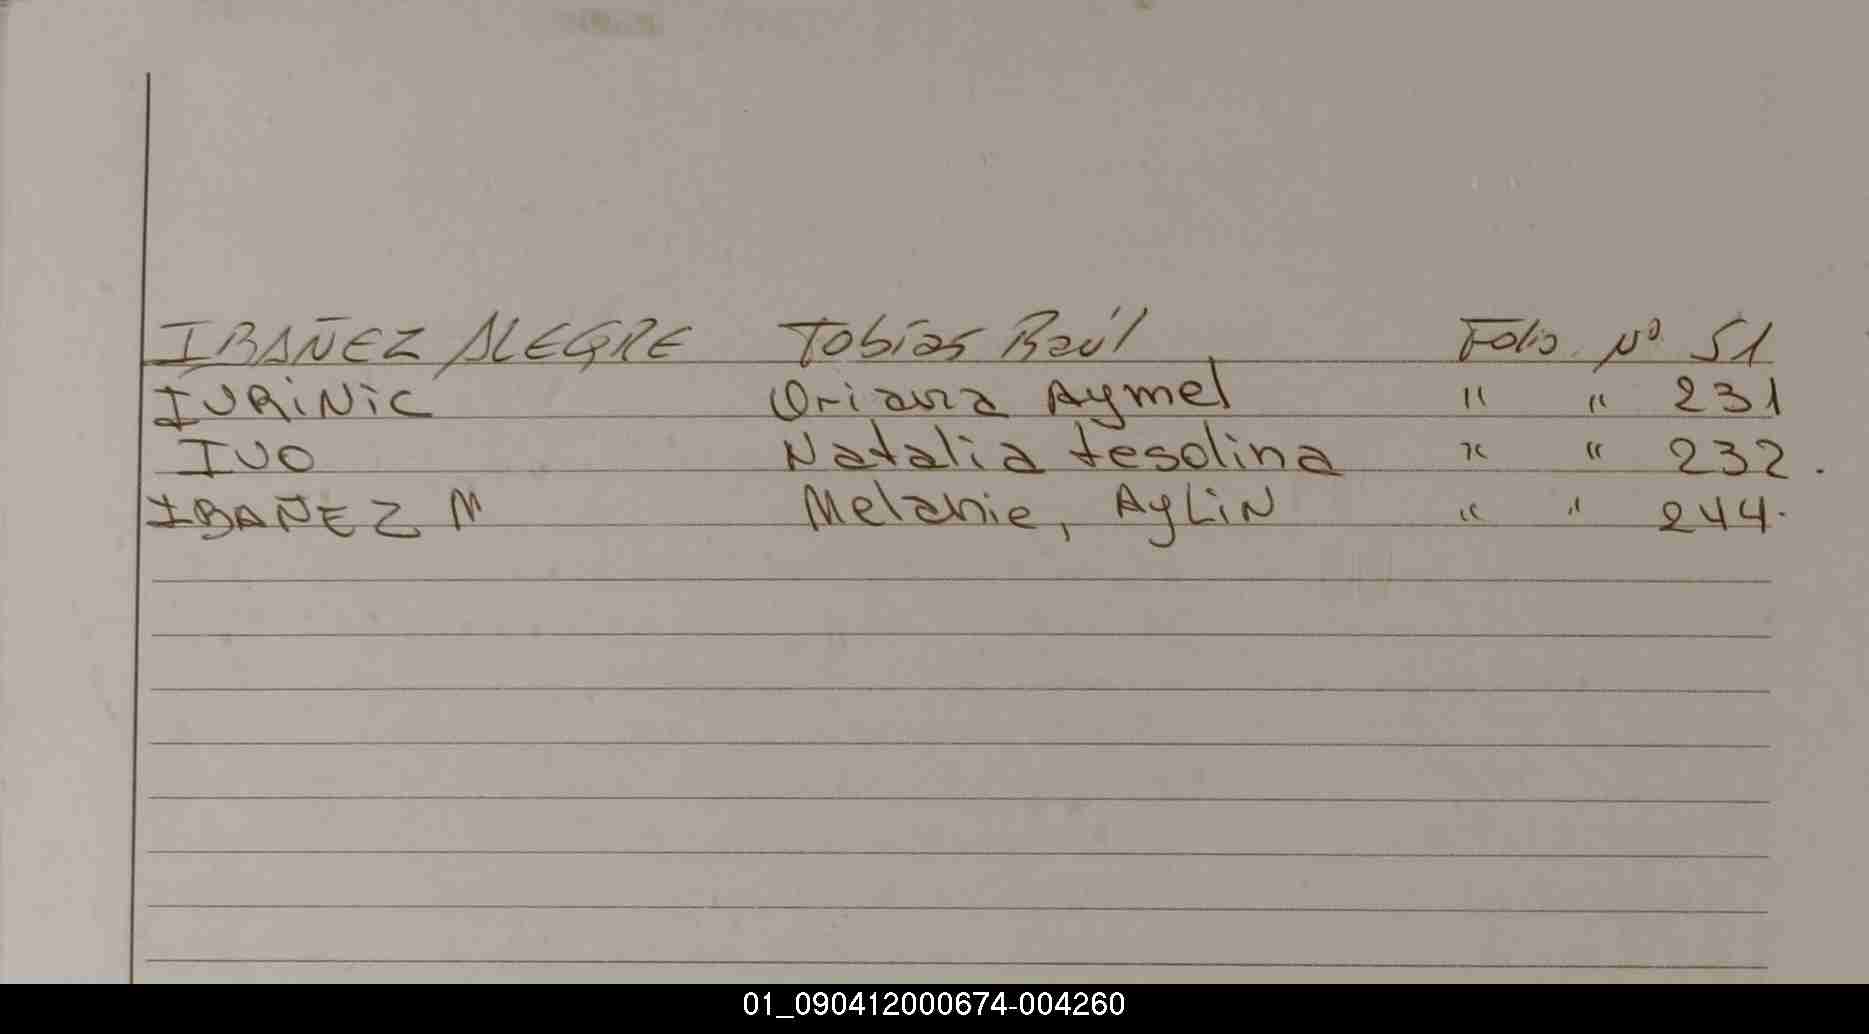 IBAÑEZ ALEGRE Tobías Raúl Folio Nº 51
IURINIC Oriana Aymel " " 231
IVO Natalia tesolina " " 232.
IBAÑEZ M Melanie, AyLiN " " 244.
01_090412000674-004260